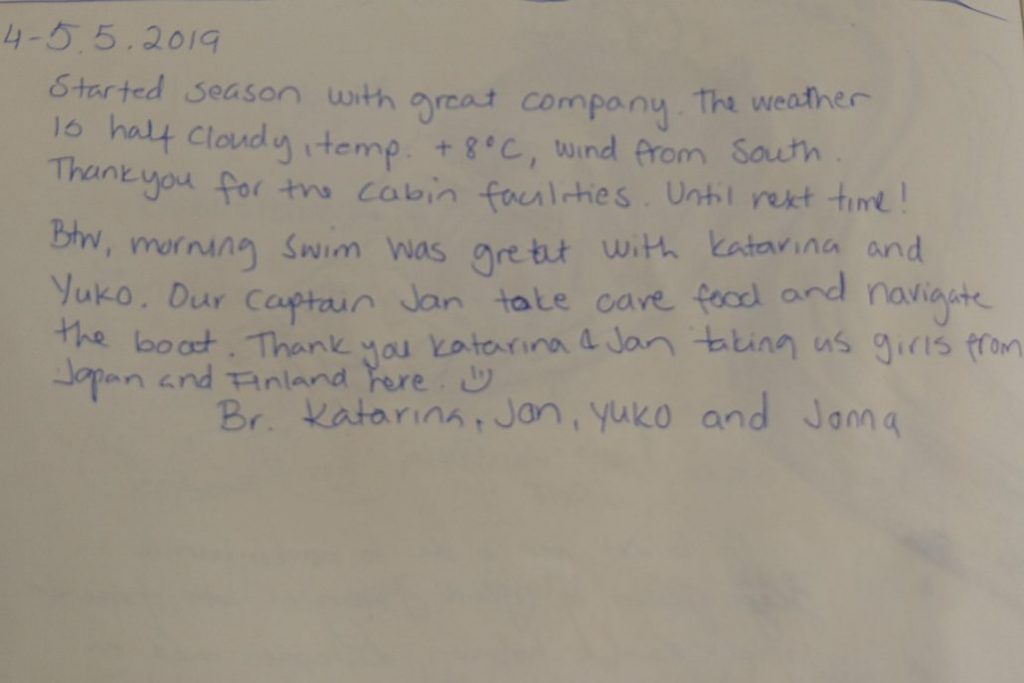 4-5.5.2019
Started season with great company. The weather
is half cloudy, temp. +8°C, wind from South.
Thank you for the cabin facilities. Until next time!
Btw, morning swim was great with Katarina and
Yuko. Our captain Jan take care food and navigate
the boat. Thank you Katarina & Jan taking us girls from
Japan and Finland here. :)
Br. Katarina, Jan, Yuko and Jonna